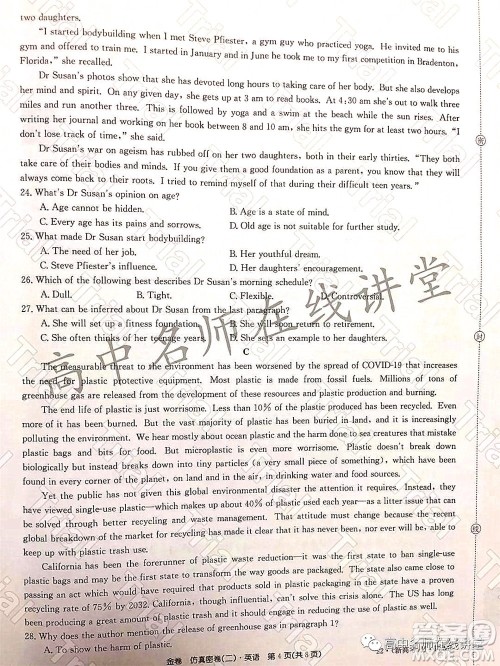 two daughters.
"I started bodybuilding when I met Steve Pfiester, a gym guy who practiced yoga. He invited me to his
gym and offered to train me. I started in January and in June he took me to my first competition in Bradenton,
Florida," she recalled.
Dr Susan's photos show that she has devoted long hours to taking care of her body. But she also develops
her mind and spirit. On any given day, she gets up at 3 am to read books. At 4:30 am she's out to walk three
miles and run another three. This is followed by yoga and a swim at the beach while the sun rises. After
writing her journal and working on her book between 8 and 10 am, she hits the gym for at least two hours. "I
don't lose track of time," she said.
Dr Susan's war on ageism has rubbed off on her two daughters, both in their early thirties. "They both
take care of their bodies and minds. If you give them a good foundation as a parent, you know that they will
always come back to their roots. I tried to remind myself of that during their difficult teen years."
24. What's Dr Susan's opinion on age?
A. Age cannot be hidden. B. Age is a state of mind.
C. Every age has its pains and sorrows. D. Old age is not suitable for further study.
25. What made Dr Susan start bodybuilding?
A. The need of her job. B. Her youthful dream.
C. Steve Pfiester's influence. D. Her daughters' encouragement.
26. Which of the following best describes Dr Susan's morning schedule?
A. Dull. B. Tight. C. Flexible. D. Controversial.
27. What can be inferred about Dr Susan from the last paragraph?
A. She will set up a fitness foundation. B. She will soon return to retirement.
C. She often thinks of her teenage years. D. She sets an example to her daughters.
C
The measurable threat to the environment has been worsened by the spread of COVID-19 that increases
the need for plastic protective equipment. Most plastic is made from fossil fuels. Millions of tons of
greenhouse gas are released from extraction of these resources and plastic production and burning.
The end life of plastic is just worrisome. Less than 10% of the plastic produced has been recycled. Even
more of it has been burned. But the vast majority of plastic has been buried in land, and it is increasingly
polluting the environment. We hear mostly about ocean plastic and the harm done to sea creatures that mistake
plastic bags and tiny bits for food. But microplastic is even more worrisome. Plastic doesn't break down
biologically but instead breaks down into tiny particles (a very small piece of something), which have been
found in every corner of the planet, on land and in the air, in drinking water and food sources.
Yet the public has not given this global environmental disaster the attention it requires. Instead, they
have viewed single-use plastic—which makes up about 40% of plastic used each year—as a litter issue that can
be solved through better recycling and waste management. That attitude must change because the recent
global breakdown of the market for recycling has made it clear that it has never been, nor ever will be, able to
keep up with plastic trash use.
California has been the forerunner of plastic waste reduction—it was the first state to ban single-use
plastic bags and may be the first state to transform the way goods are packaged. The state also came close to
passing an act which would have required that products sold in plastic packaging in the state have a proven
recycling rate of 75% by 2032. California, though influential, can't solve this crisis alone. The US has long
produced a great amount of plastic trash, and it should engage in reducing the use of plastic to save energy.
28. Why does the author mention the release of greenhouse gas in paragraph 1?
A. To show the harm of plastic.
金卷 仿真密卷(二)·英语 第4页(共8页)
密
封
线
高中名师在线讲堂
高中名师在线讲堂